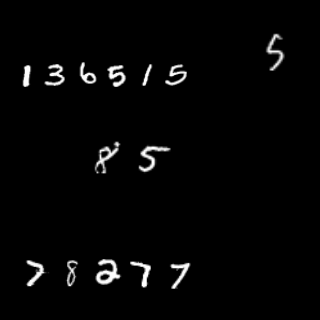 5
136515
85
78277